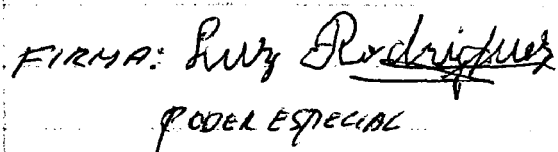 FIRMA: Luz Rodriguez
PODER ESPECIAL